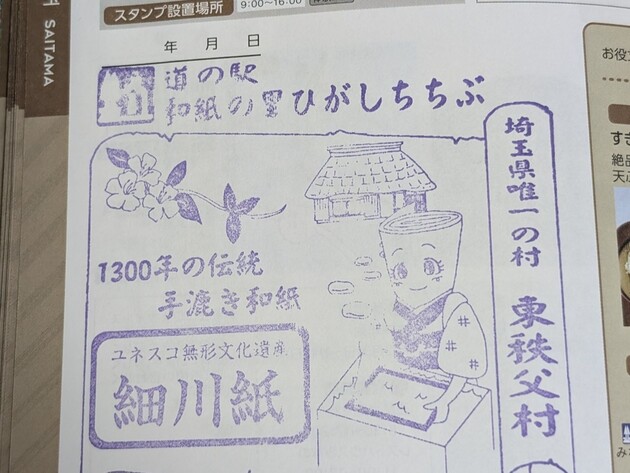 SAITAMA
スタンプ設置場所
9:00~16:00
年 月 日
道の駅
和紙の里ひがしちちぶ
埼玉県唯一の村 東秩父村
1300年の伝統
手漉き和紙
ユネスコ無形文化遺産
細川紙
お役立
すき
絶品
天ぷ
み